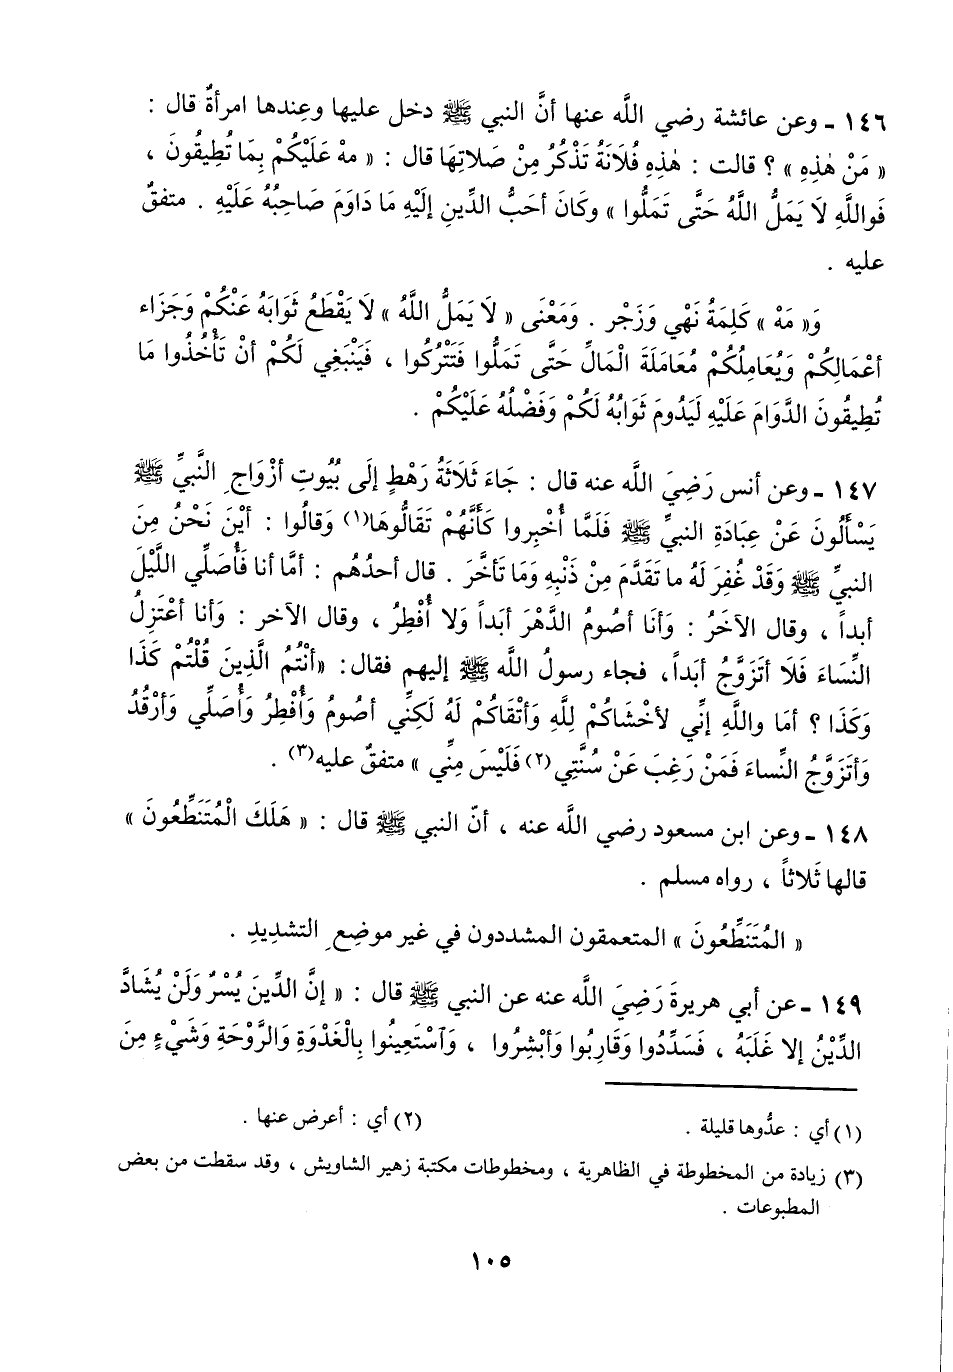 ١٤٦ - وعن عائشة رضي اللَّه عنها أنَّ النبي ﷺ دخل عليها وعِندها امرأةٌ قال :
« مَنْ هٰذِهِ » ؟ قالت : هٰذِهِ فُلَانَةُ تَذْكُرُ مِنْ صَلاتِهَا قال : « مهْ عَلَيْكُمْ بِمَا تُطِيقُونَ ،
فَواللَّهِ لَا يَمَلُّ اللَّهُ حَتَّى تَمَلُّوا » وكَانَ أحَبُّ الدِّينِ إلَيْهِ مَا دَاوَمَ صَاحِبُهُ عَلَيْهِ . متفقٌ
عليه .
وَ« مَهْ » كَلِمَةُ نَهْي وَزَجْر . وَمَعْنَى « لَا يَمَلُّ اللَّهُ » لَا يَقْطَعُ ثَوَابَهُ عَنْكُمْ وَجَزَاء
أعْمَالِكُمْ وَيُعَامِلُكُمْ مُعَامَلَةَ الْمَالِّ حَتَّى تَمَلُّوا فَتَتْرُكُوا ، فَيَنْبَغِي لَكُمْ أنْ تَأْخُذُوا مَا
تُطِيقُونَ الدَّوَامَ عَلَيْهِ لَيَدُومَ ثَوَابُهُ لَكُمْ وَفَضْلُهُ عَلَيْكُمْ .
١٤٧ - وعن أنس رَضِيَ اللَّه عنه قال : جَاءَ ثَلَاثَةُ رَهْطٍ إلَى بُيُوتِ أزْوَاجِ النَّبيِّ ﷺ
يَسْأَلُونَ عَنْ عِبَادَةِ النبيِّ ﷺ فَلَمَّا أُخْبِروا كَأَنَّهُمْ تَقَالُّوهَا(١) وَقالُوا : أيْنَ نَحْنُ مِنَ
النبيِّ ﷺ وَقَدْ غُفِرَ لَهُ ما تَقَدَّمَ مِنْ ذَنْبِهِ وَمَا تَأخَّرَ . قال أحدُهُم : أمَّا أنا فَأُصَلِّي اللَّيْلَ
أبداً ، وقال الآخَرُ : وَأنَا أصُومُ الدَّهْرَ أبَداً وَلا أُفْطِرُ ، وقال الآخر : وَأنا أعْتَزِلُ
النِّسَاءَ فَلَا أتَزَوَّجُ أبَداً، فجاء رسولُ اللَّه ﷺ إليهم فقال: «أنْتُمُ الَّذِينَ قُلْتُمْ كَذَا
وَكَذَا ؟ أمَا واللَّهِ إنِّي لأخْشَاكُمْ لِلَّهِ وَأتْقَاكُمْ لَهُ لَكِنِّي أصُومُ وَأُفْطِرُ وَأُصَلِّي وَأرْقُدُ
وَأتَزَوَّجُ النِّساءَ فَمَنْ رَغِبَ عَنْ سُنَّتِي(٢) فَلَيْسَ مِنِّي » متفقٌ عليه(٣) .
١٤٨ - وعن ابن مسعود رضي اللَّه عنه ، أنّ النبي ﷺ قال : « هَلَكَ الْمُتَنَطِّعُونَ »
قالها ثَلاثاً ، رواه مسلم .
« المُتَنَطِّعُونَ » المتعمقون المشددون في غير موضِعِ التشدِيدِ .
١٤٩ - عن أبي هريرةَ رَضِيَ اللَّه عنه عن النبي ﷺ قال : « إنَّ الدِّينَ يُسْرٌ وَلَنْ يُشَادَّ
الدِّيْنُ إلا غَلَبَهُ ، فَسَدِّدُوا وَقَارِبُوا وَأبْشِرُوا ، وَاسْتَعِينُوا بِالْغَدْوَةِ وَالرَّوْحَةِ وَشَيْءٍ مِنَ
(١) أي : عدُّوها قليلة .
(٢) أي : أعرض عنها .
(٣) زيادة من المخطوطة في الظاهرية ، ومخطوطات مكتبة زهير الشاويش ، وقد سقطت من بعض
المطبوعات .
١٠٥